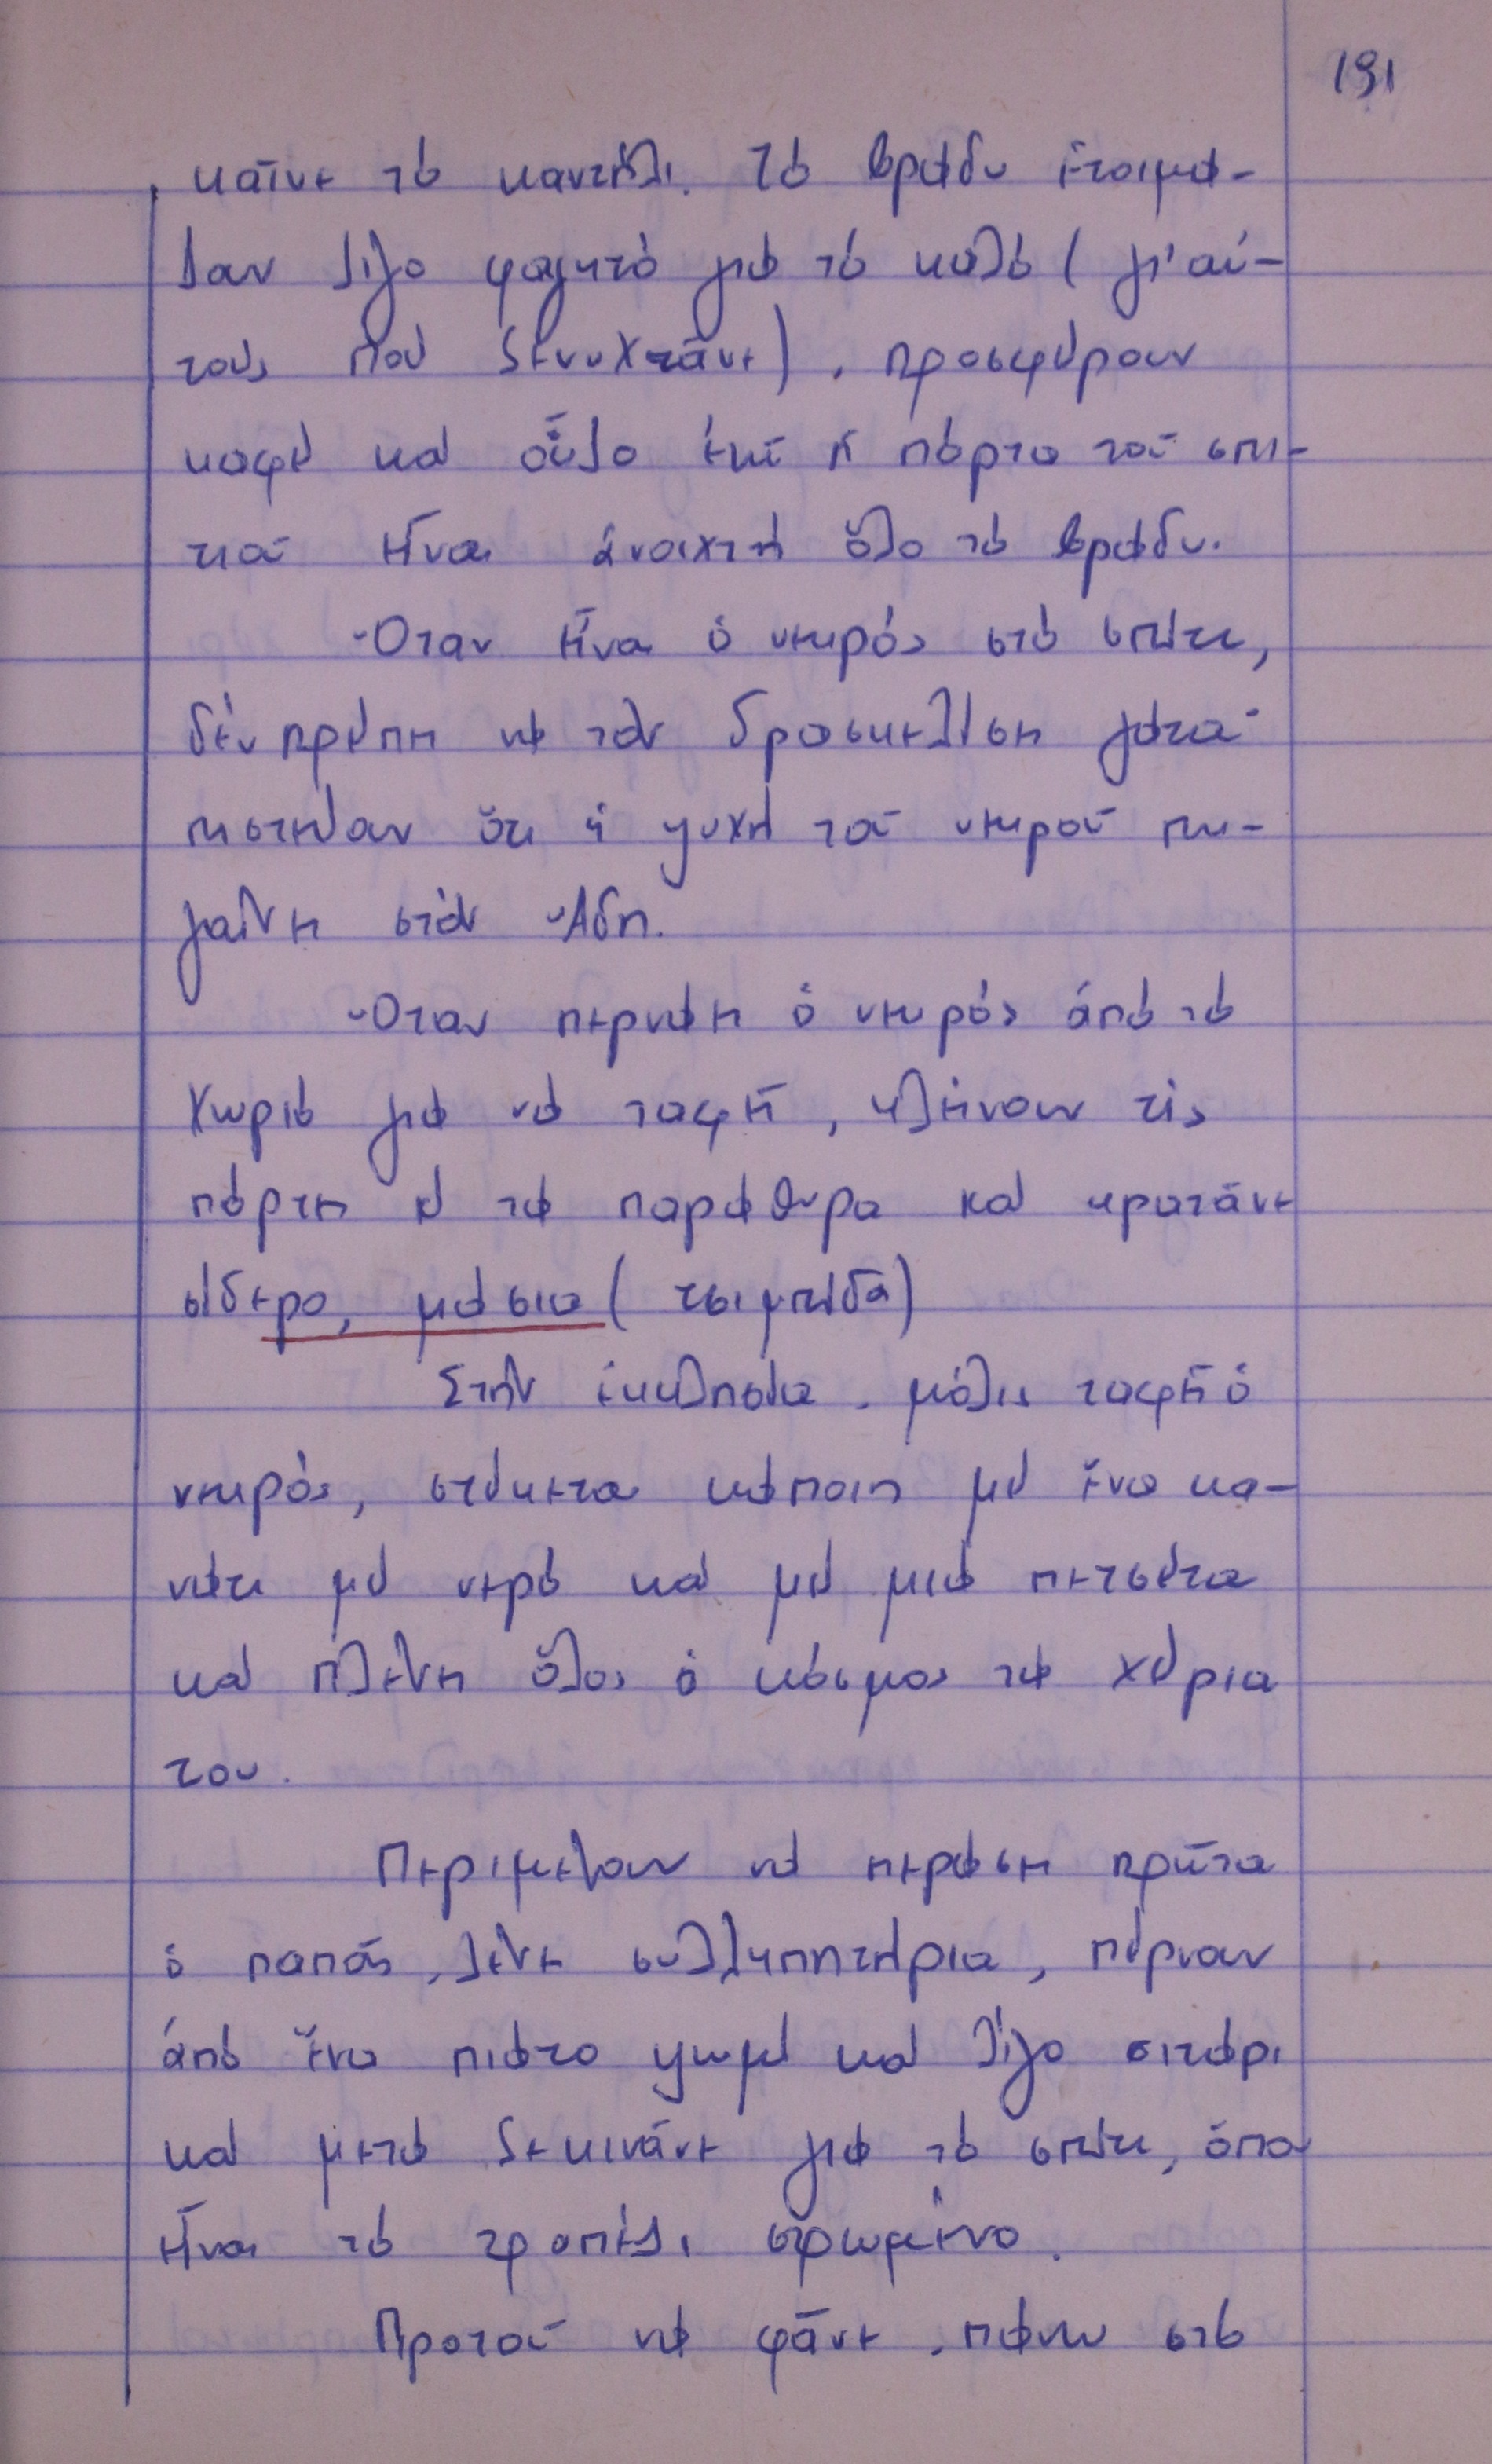 191
καῖνε τό καντήλι. Τό βράδυ ἑτοιμά-
ζουν λίγο φαγητό γιά τό καλό (γι' αὐ-
τούς πού ξενυχτᾶνε), προσφέρουν
καφέ καί οὖζο ἐκεῖ ἡ πόρτα τοῦ σπι-
τιοῦ εἶναι ἀνοιχτή ὅλο τό βράδυ.
Ὅταν εἶναι ὁ νεκρός στό σπίτι,
δέν πρέπει νά τόν δρασκελίσει γάτα·
πιστεύουν ὅτι ἡ ψυχή τοῦ νεκροῦ πη-
γαίνει στόν Ἅδη.
Ὅταν περνάει ὁ νεκρός ἀπό τό
χωριό γιά νά ταφεῖ, κλείνουν τίς
πόρτες ἤ τά παράθυρα καί κρατᾶνε
σίδερο, μάσια (τσιμπίδα)
Στήν ἐκκλησία, μόλις ταφεῖ ὁ
νεκρός, στέκεται κάποιος μέ ἕνα κα-
νάτι μέ νερό καί μέ μιά πετσέτα
καί πλένει ὅλος ὁ κόσμος τά χέρια
του.
Περιμένουν νά περάσει πρῶτα
ὁ παπάς, λένε συλλυπητήρια, πέρνουν
ἀπό ἕνα πιάτο ψωμί καί λίγο σιτάρι
καί μετά ξεκινᾶνε γιά τό σπίτι, ὅπου
εἶναι τό τραπέζι στρωμένο.
Προτοῦ νά φᾶνε, πάνω στό